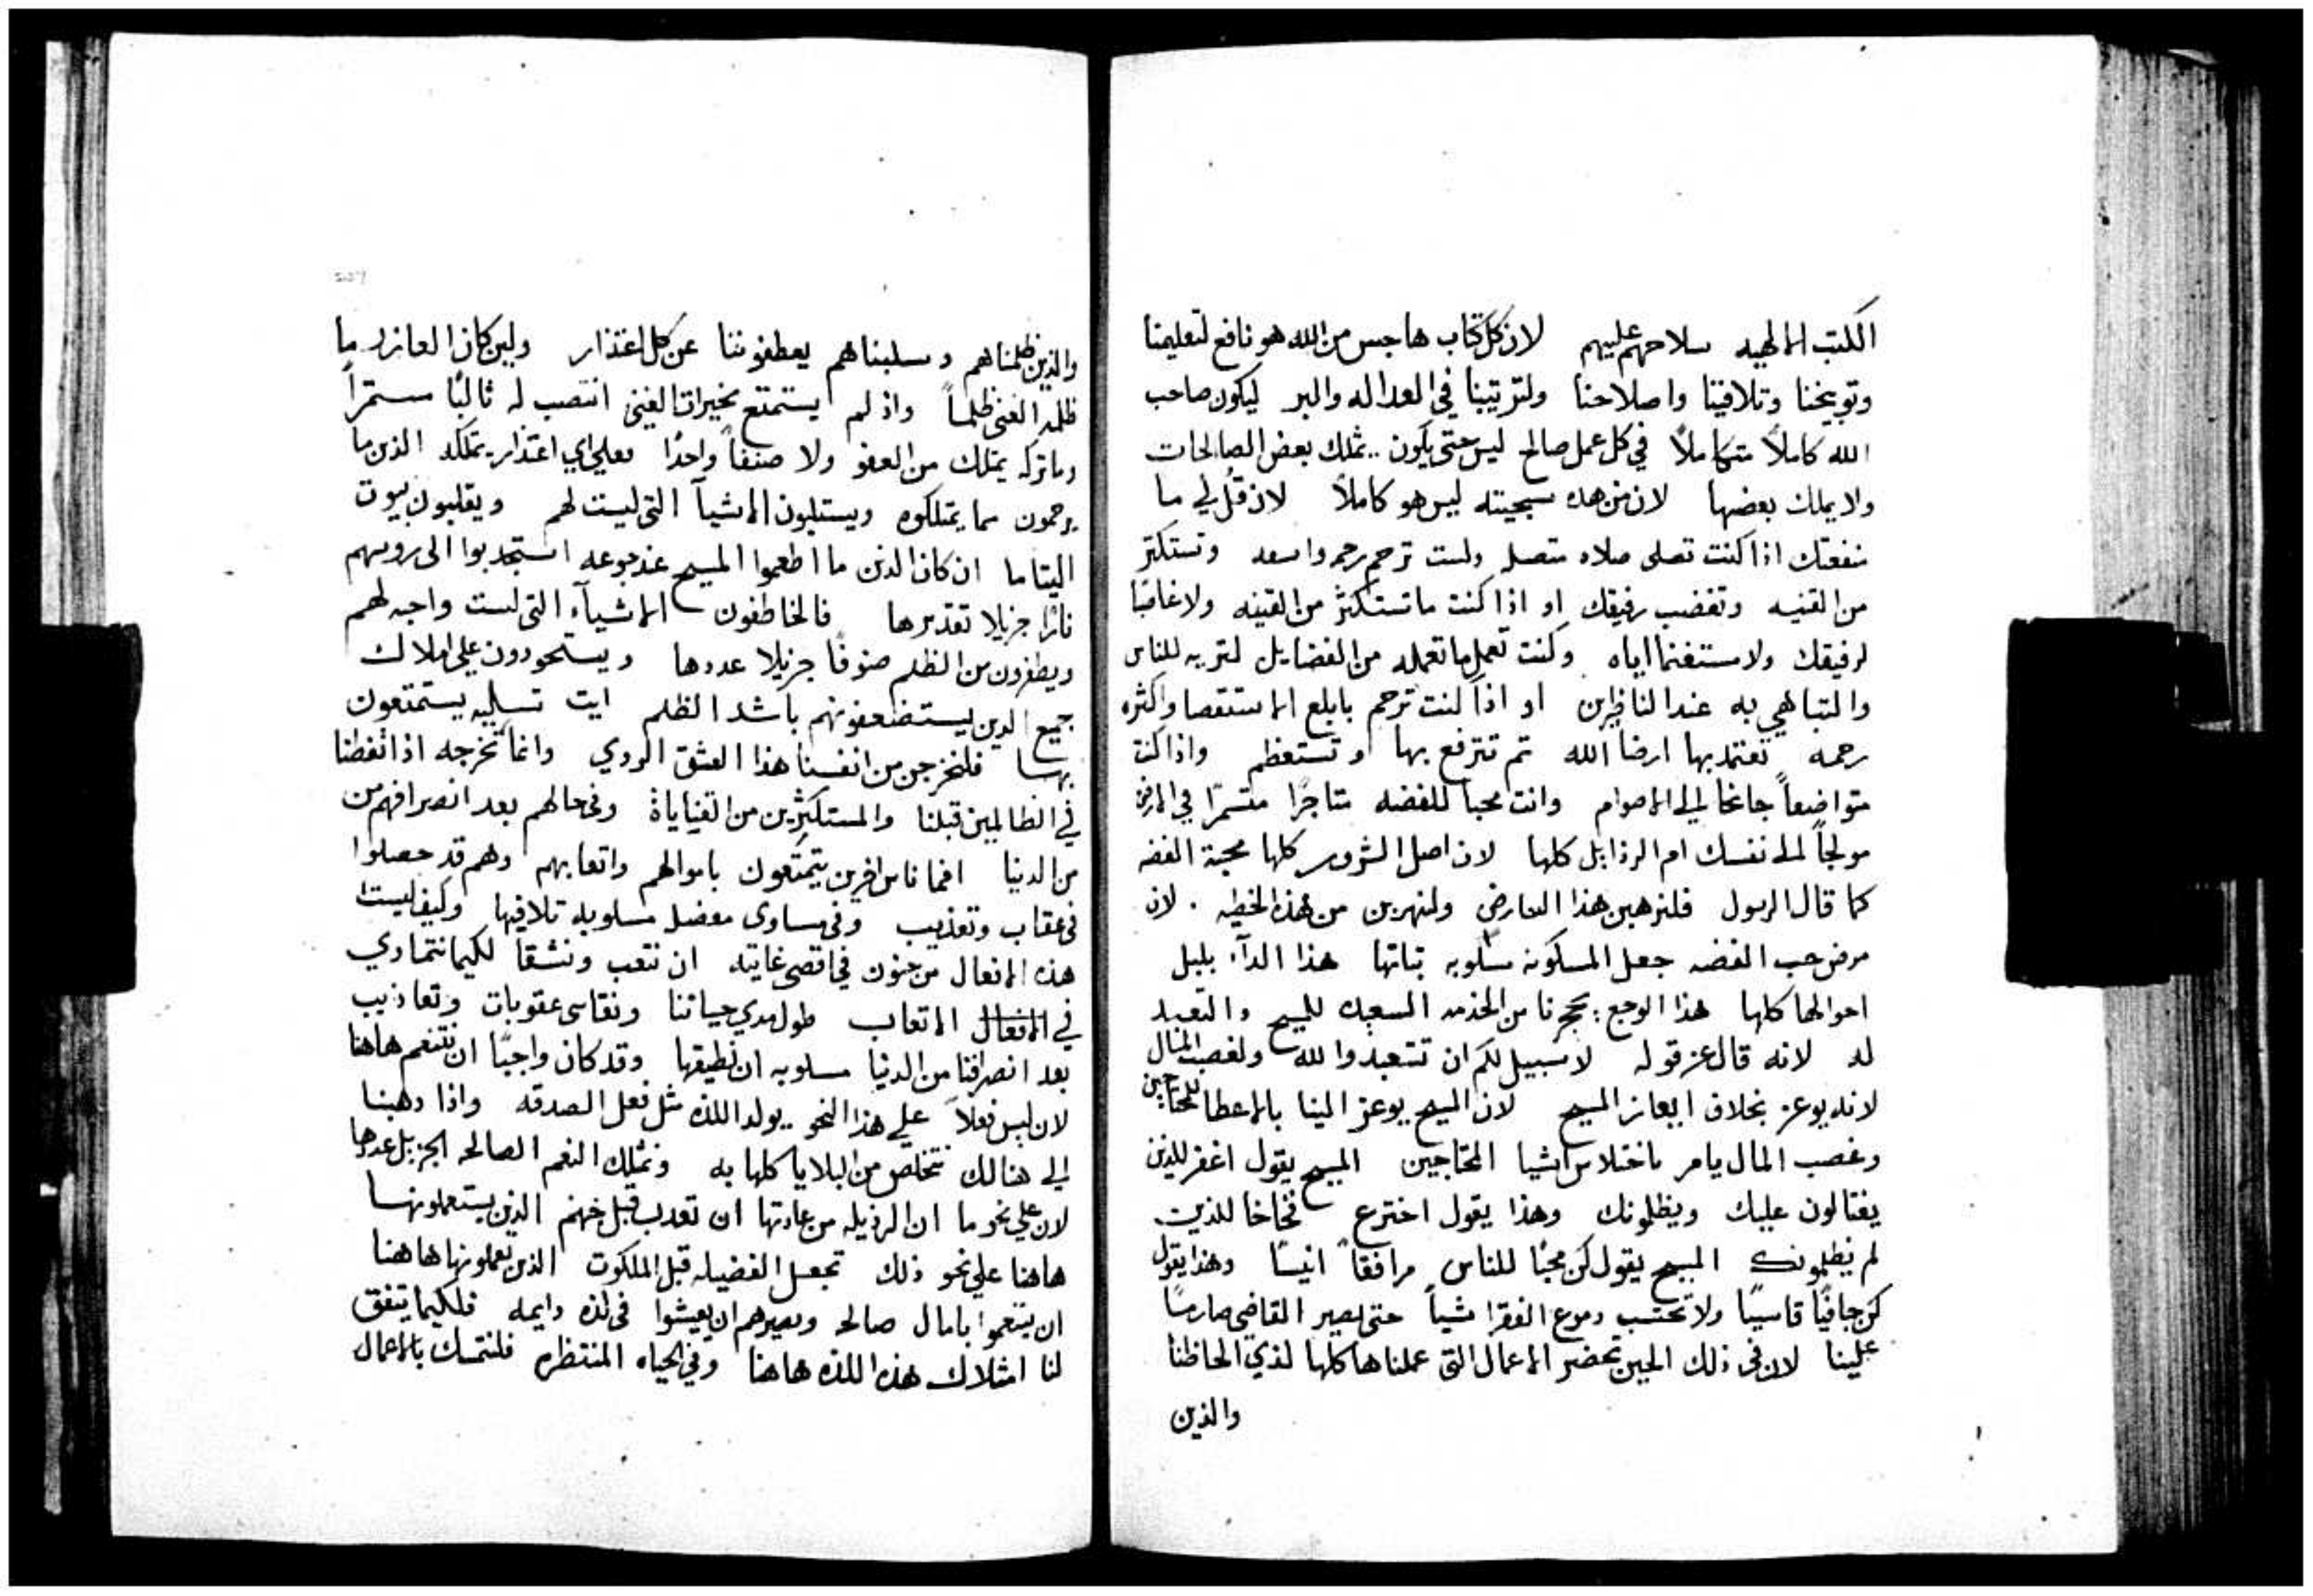 الكتب الالهيه سلاحهم عليهم لان كل كتاب هاجس من الله هو نافع لتعليمنا
وتوبيخنا وتلافينا واصلاحنا ولتربيتنا في العداله والبر ليكون صاحب
الله كاملاً متكاملاً في كل عمل صالح ليس حتى يكون يملك بعض الصالحات
ولا يملك بعضها لان من هذه سجيته ليس هو كاملاً لان قُل لي ما
منفعتك اذا كنت تصلى صلاه متصله ولست ترحم رحمه واسعه وتستكثر
من القنيه وتغضب رفيقك او اذا كنت ما تستكثر من القنيه ولا غاصبًا
لرفيقك ولا مستغنما اياه وكنت تعمل ما تعمله من الفضايل لتريه للناس
والتباهي به عند الناظرين او اذا كنت ترحم بابلغ الاستقصا واكثره
رحمه تعتمد بها ارضا الله ثم تترفع بها او تستعظم واذا كنت
متواضعاً جانحا الى الاصوام وانت محبا للفضه متاجرًا متسمرًا في الارض
مولجاً الى نفسك ام الرذايل كلها لان اصل الشرور كلها محبة الفضه
كما قال الرسول فلنرهبن هذا العارض ولنهربن من هذه الخطيه . لان
مرض حب الفضه جعل المسكونه مسلوبه ثباتها هذا الدآء بلبل
احوالها كلها هذا الوجع يحجرنا من الخدمه السعيده للمسيح والتعبد
له لانه قال عز قوله لا سبيل لكم ان تتعبدوا لله ولغصب المال
لانه يوعز بخلاف ايعاز المسيح لان المسيح يوعز الينا بالاعطا للمحتاجين
وغصب المال يامر باختلاس اشيا المحتاجين المسيح يقول اغفر للذين
يغتالون عليك ويظلمونك وهذا يقول اخترع فخاخا للذين
لم يظلمونك المسيح يقول كن محبًا للناس مرافقاً انيسًا وهذا يقول
كن جافيًا قاسيًا ولا تحتسب دموع الفقرا شياً حتى يصير القاضى صارمًا
علينا لان في ذلك الحين تحضر الاعمال التى عملناها كلها لذي الحاظنا
والذين
والذين ظلمناهم وسلبناهم يعطفوننا عن كل اعتذار ولين كان العازر ما
ظلمه الغنى ظلماً واذ لم يستمتع بخيرات الغنى انتصب له ثالبًا مستمراً
وما تركه يمتلك من العفو ولا صنفاً واحدًا فعلي اي اعتذار يتملكه الذين ما
يرحمون مما يمتلكوه ويستلبون الاشيآ التى ليست لهم ويقلبون بيوت
اليتاما ان كان الذين ما اطعموا المسيح عند جوعه استجدبوا الى روسهم
نارًا جزيلا تقديرها فالخاطفون الاشيآء التى ليست واجبه لهم
ويطفرون من الظلم صنوفًا جزيلا عددها ويستحوذون على املاك
جميع الذين يستضعفونهم باشد الظلم ايت تسليه يستمتعون
بها فلنخرجن من انفسنا هذا العشق الردي وانما نخرجه اذا اتفطنا
في الظالمين قبلنا والمستكثرين من القناياة وفي حالهم بعد انصرافهم من
من الدنيا افما ناس اخرين يتمتعون باموالهم واتعابهم وهم قد حصلوا
في عقاب وتعذيب وفي مساوى معضله مسلوبه تلافيها وكيف ليست
هذه الافعال من جنون في اقصى غايته ان نتعب ونشقا لكيما نتمادي
في الافعال الاتعاب طول مدي حياتنا ونقاسى عقوبات وتعاذيب
بعد انصرافنا من الدنيا مسلوبه ان نطيقها وقد كان واجبًا ان نتنعم هاهنا
لان ليس فعلاً على هذا النحو يولد اللذه مثل فعل الصدقه واذا ذهبنا
الى هنالك نتخلص من البلايا كلها به ونمتلك النعم الصالحه الجزيل عددها
لان علي نحو ما ان الرذيله من عادتها ان تعذب قبل جهنم الذين يستعملونها
هاهنا على نحو ذلك تجعل الفضيله قبل الملكوت الذين يعملونها هاهنا
ان يتنعموا بامال صالحه وبصيرهم ان يعيشوا في لذه دايمه فلكيما يتفق
لنا امتلاك هذه اللذه هاهنا وفي الحياه المنتظره فلنتمسك بالاعمال